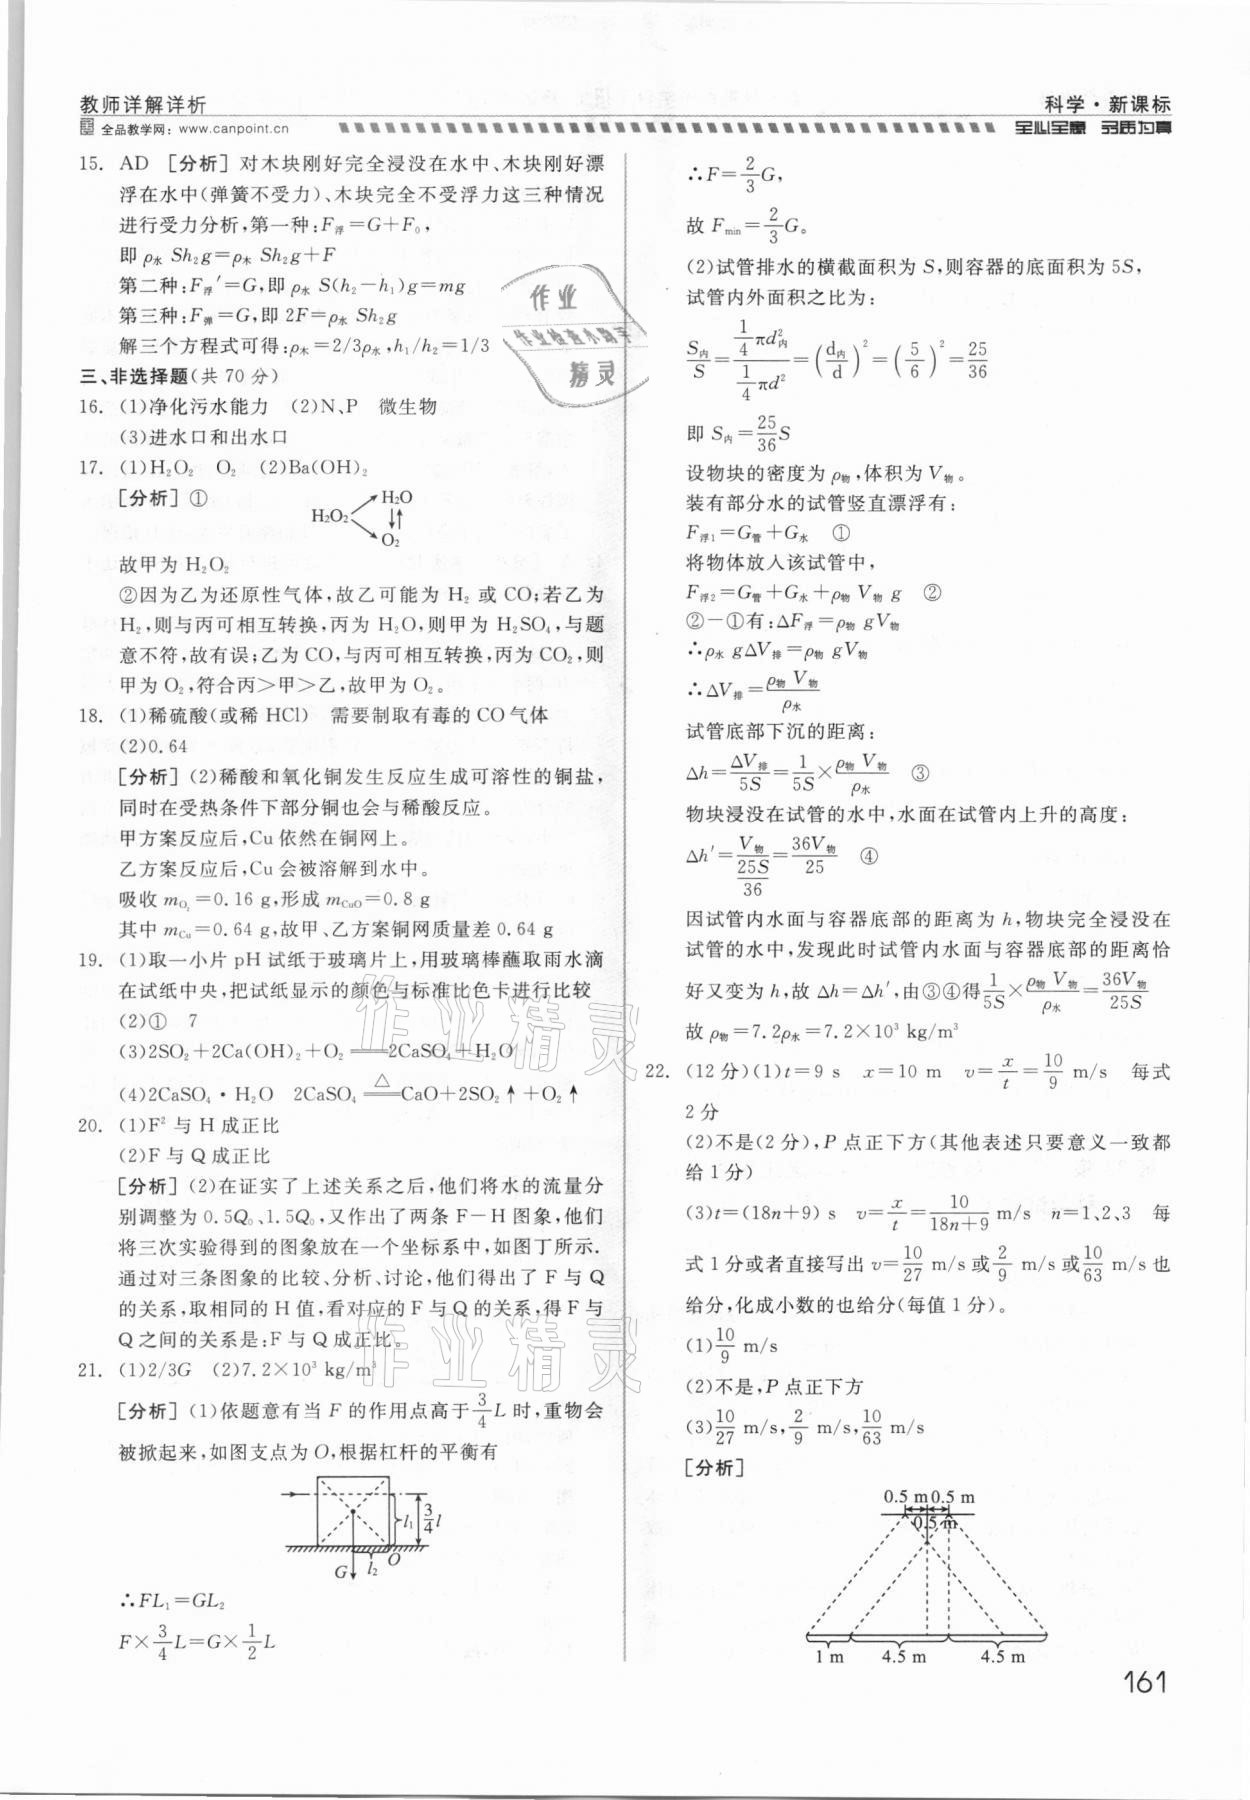 教师详解详析
全品教学网：www.canpoint.cn
科学·新课标
全心全意 品质为真
15. AD [分析]对木块刚好完全浸没在水中、木块刚好漂
浮在水中(弹簧不受力)、木块完全不受浮力这三种情况
进行受力分析,第一种:F浮=G+F₀,
即 ρ水 Sh₂g=ρ木 Sh₂g+F
第二种:F浮′=G,即 ρ水 S(h₂-h₁)g=mg
第三种:F弹=G,即 2F=ρ木 Sh₂g
解三个方程式可得:ρ木=2/3ρ水,h₁/h₂=1/3
三、非选择题(共 70 分)
16. (1)净化污水能力 (2)N、P 微生物
(3)进水口和出水口
17. (1)H₂O₂ O₂ (2)Ba(OH)₂
[分析]①
H₂O₂ H₂O ↓↑ O₂
故甲为 H₂O₂
②因为乙为还原性气体,故乙可能为 H₂ 或 CO;若乙为
H₂,则与丙可相互转换,丙为 H₂O,则甲为 H₂SO₄,与题
意不符,故有误;乙为 CO,与丙可相互转换,丙为 CO₂,则
甲为 O₂,符合丙>甲>乙,故甲为 O₂。
18. (1)稀硫酸(或稀 HCl) 需要制取有毒的 CO 气体
(2)0.64
[分析](2)稀酸和氧化铜发生反应生成可溶性的铜盐,
同时在受热条件下部分铜也会与稀酸反应。
甲方案反应后,Cu 依然在铜网上。
乙方案反应后,Cu 会被溶解到水中。
吸收 mO₂=0.16 g,形成 mCuO=0.8 g
其中 mCu=0.64 g,故甲、乙方案铜网质量差 0.64 g
19. (1)取一小片 pH 试纸于玻璃片上,用玻璃棒蘸取雨水滴
在试纸中央,把试纸显示的颜色与标准比色卡进行比较
(2)① 7
(3)2SO₂+2Ca(OH)₂+O₂══2CaSO₄+H₂O
(4)2CaSO₄·H₂O 2CaSO₄ △══ CaO+2SO₂↑+O₂↑
20. (1)F²与 H 成正比
(2)F 与 Q 成正比
[分析](2)在证实了上述关系之后,他们将水的流量分
别调整为 0.5Q₀、1.5Q₀,又作出了两条 F-H 图象,他们
将三次实验得到的图象放在一个坐标系中,如图丁所示.
通过对三条图象的比较、分析、讨论,他们得出了 F 与 Q
的关系,取相同的 H 值,看对应的 F 与 Q 的关系,得 F 与
Q 之间的关系是:F 与 Q 成正比。
21. (1)2/3G (2)7.2×10³ kg/m³
[分析](1)依题意有当 F 的作用点高于3/4L 时,重物会
被掀起来,如图支点为 O,根据杠杆的平衡有
l₁ 3/4l
G l₂ O
∴FL₁=GL₂
F×3/4L=G×1/2L
∴F=2/3G,
故 Fmin=2/3G。
(2)试管排水的横截面积为 S,则容器的底面积为 5S,
试管内外面积之比为:
S内/S=(1/4πd²内)/(1/4πd²)=(d内/d)²=(5/6)²=25/36
即 S内=25/36S
设物块的密度为 ρ物,体积为 V物。
装有部分水的试管竖直漂浮有:
F浮1=G管+G水 ①
将物体放入该试管中,
F浮2=G管+G水+ρ物 V物 g ②
②-①有:△F浮=ρ物 gV物
∴ρ水 g△V排=ρ物 gV物
∴△V排=ρ物 V物/ρ水
试管底部下沉的距离:
△h=△V排/5S=1/5S×ρ物 V物/ρ水 ③
物块浸没在试管的水中,水面在试管内上升的高度:
△h′=V物/(25S/36)=36V物/25 ④
因试管内水面与容器底部的距离为 h,物块完全浸没在
试管的水中,发现此时试管内水面与容器底部的距离恰
好又变为 h,故 △h=△h′,由③④得1/5S×ρ物 V物/ρ水=36V物/25S
故 ρ物=7.2ρ水=7.2×10³ kg/m³
22. (12 分)(1)t=9 s x=10 m v=x/t=10/9 m/s 每式
2 分
(2)不是(2 分),P 点正下方(其他表述只要意义一致都
给 1 分)
(3)t=(18n+9) s v=x/t=10/18n+9 m/s n=1、2、3 每
式 1 分或者直接写出 v=10/27 m/s 或2/9 m/s 或10/63 m/s 也
给分,化成小数的也给分(每值 1 分)。
(1)10/9 m/s
(2)不是,P 点正下方
(3)10/27 m/s,2/9 m/s,10/63 m/s
[分析]
0.5 m 0.5 m
0.5 m
1 m 4.5 m 4.5 m
161
作业
作业检查小助手
精灵
作业精灵
作业精灵